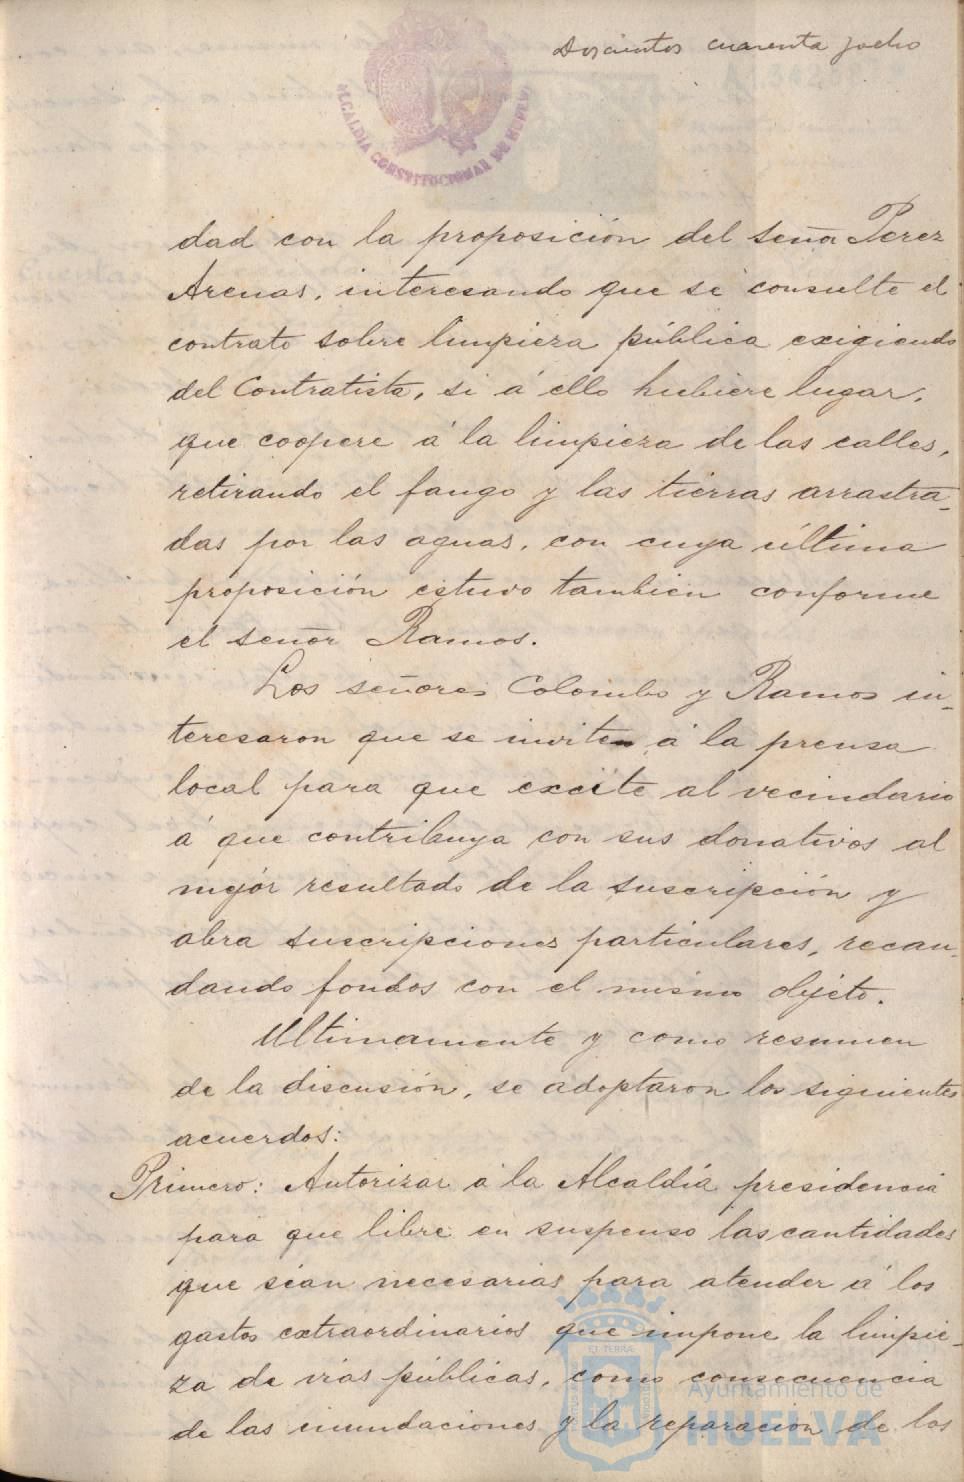 Doscientos cuarenta yocho
ALCALDIA CONSTITUCIONAL DE HUELVA
dad con la proposición del señor Perez
Arenas, interesando que se consulte el
contrato sobre limpieza pública exigiendo
del Contratista, si á ello hubiere lugar,
que coopere á la limpieza de las calles,
retirando el fango y las tierras arrastra-
das por las aguas, con cuya última
proposición estuvo tambien conforme
el señor Ramos.
Los señores Colombo y Ramos in-
teresaron que se invite á la prensa
local para que excite al vecindario
á que contribuya con sus donativos al
mejór resultado de la suscripción y
abra suscripciones particulares, recau-
dando fondos con el mismo objeto.
Ultimamente y como resumen
de la discusión, se adoptaron los siguientes
acuerdos:
Primero: Autorizar á la Alcaldía presidencia
para que libre en suspenso las cantidades
que séan necesarias para atender á los
gastos extraordinarios que impone la limpie-
za de vías públicas, como consecuencia
de las inundaciones y la reparación de los
Ayuntamiento de
HUELVA